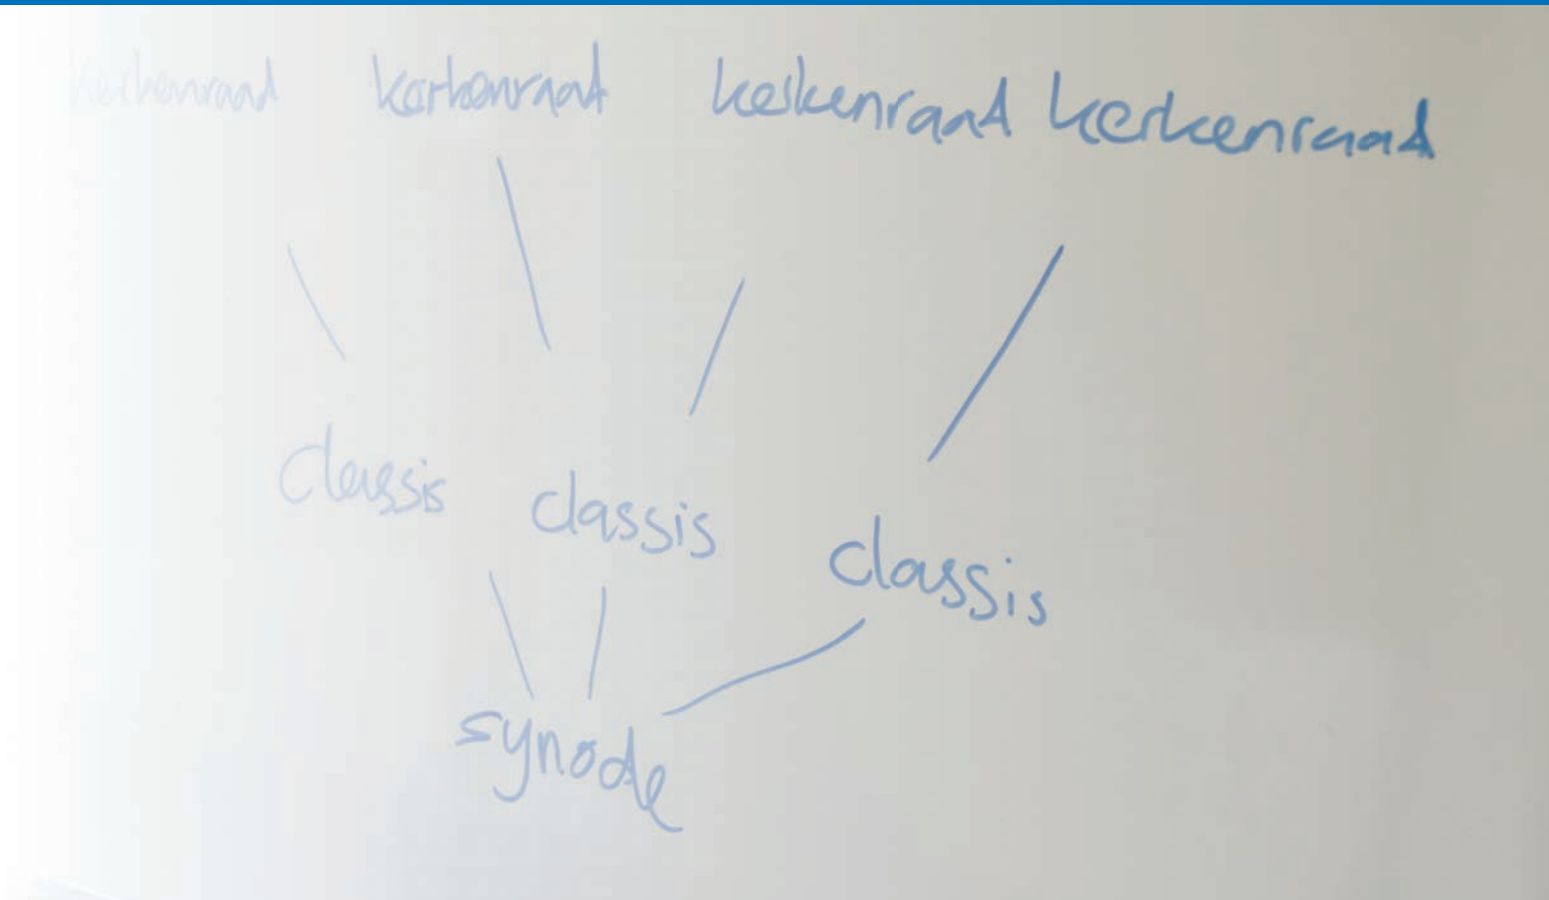 kerkenraad kerkenraad kerkenraad kerkenraad
classis classis classis
synode